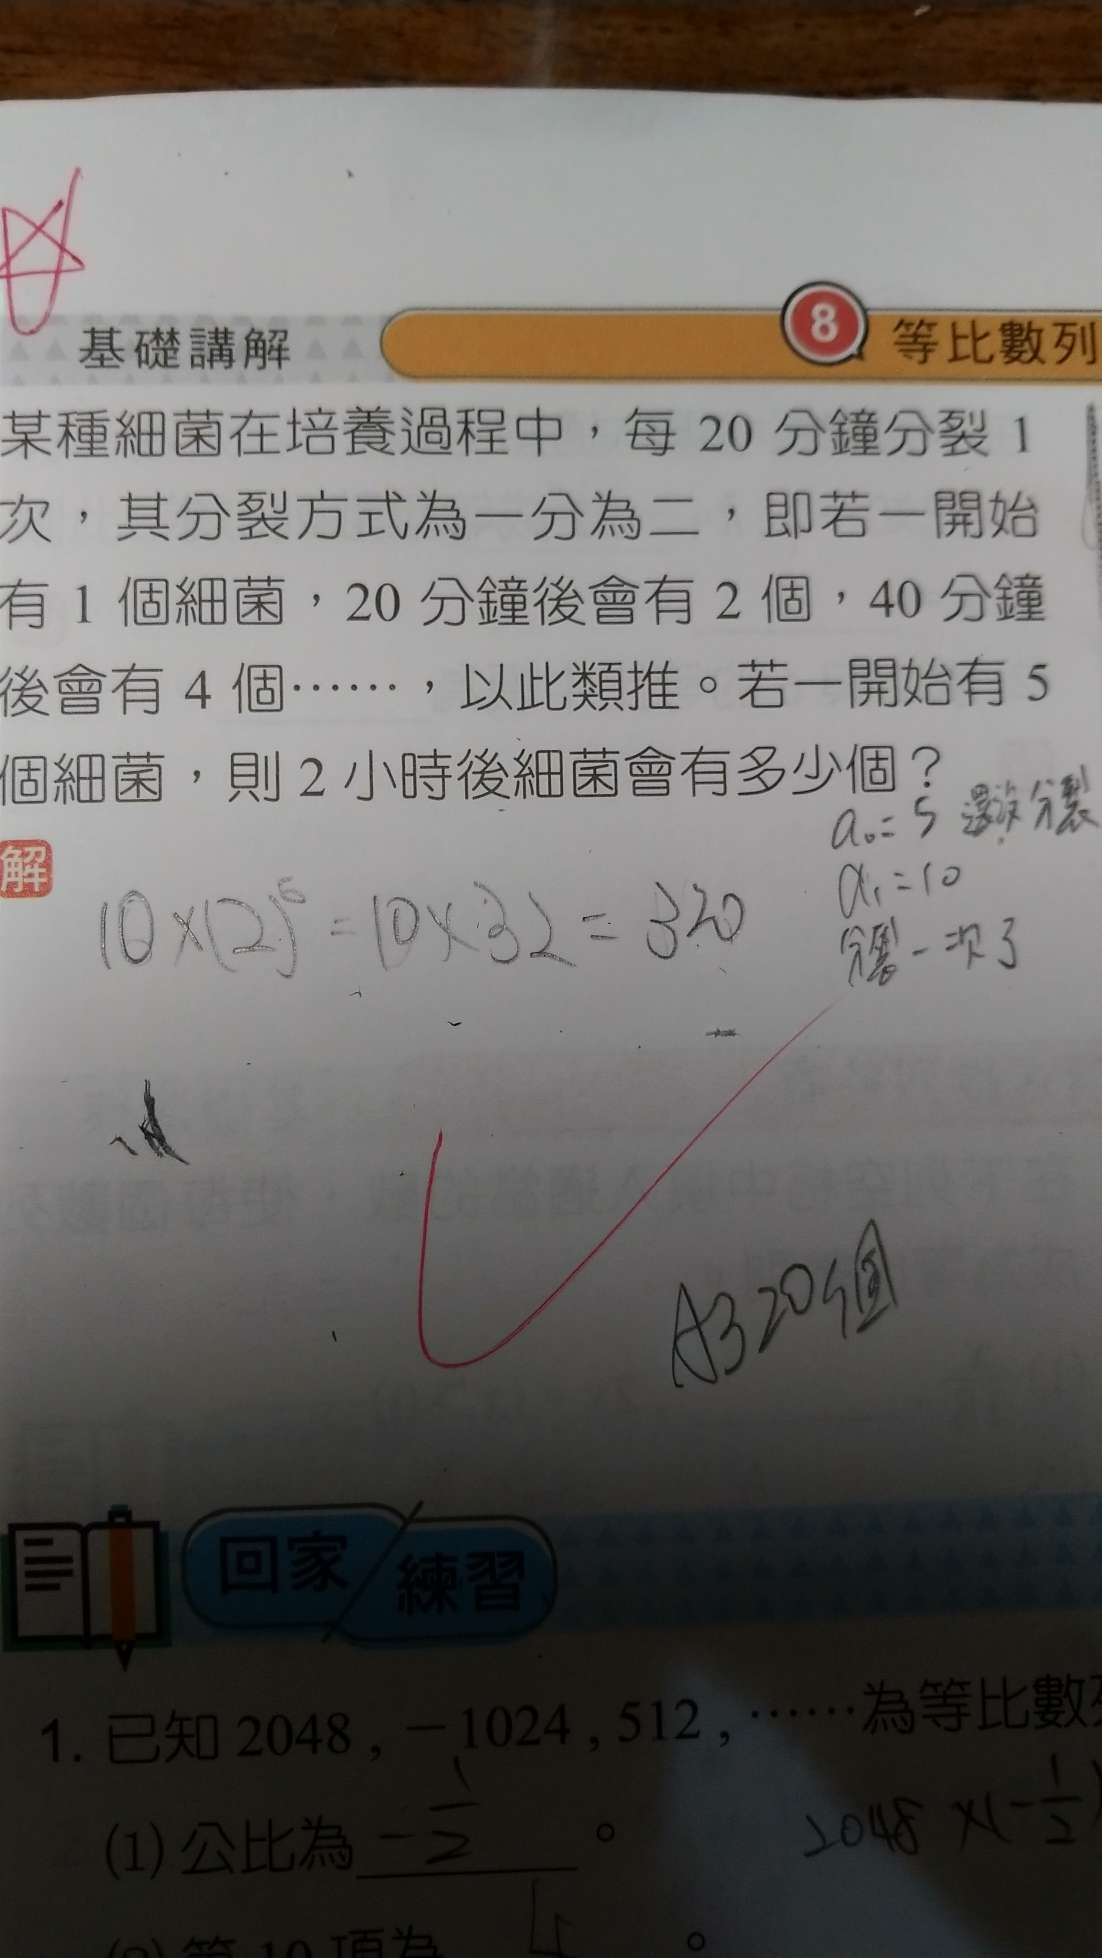 基礎講解
8 等比數列
某種細菌在培養過程中，每 20 分鐘分裂 1
次，其分裂方式為一分為二，即若一開始
有 1 個細菌，20 分鐘後會有 2 個，40 分鐘
後會有 4 個⋯⋯，以此類推。若一開始有 5
個細菌，則 2 小時後細菌會有多少個？
a₀=5 還沒分裂
a₁=10
分裂一次了
解
10×(2)⁵=10×32=320
A320個
回家練習
1. 已知 2048 , －1024 , 512 , ⋯⋯為等比數列
(1) 公比為 -1/2 。
2048×(-1/2)
(2) 第 10 項為 。